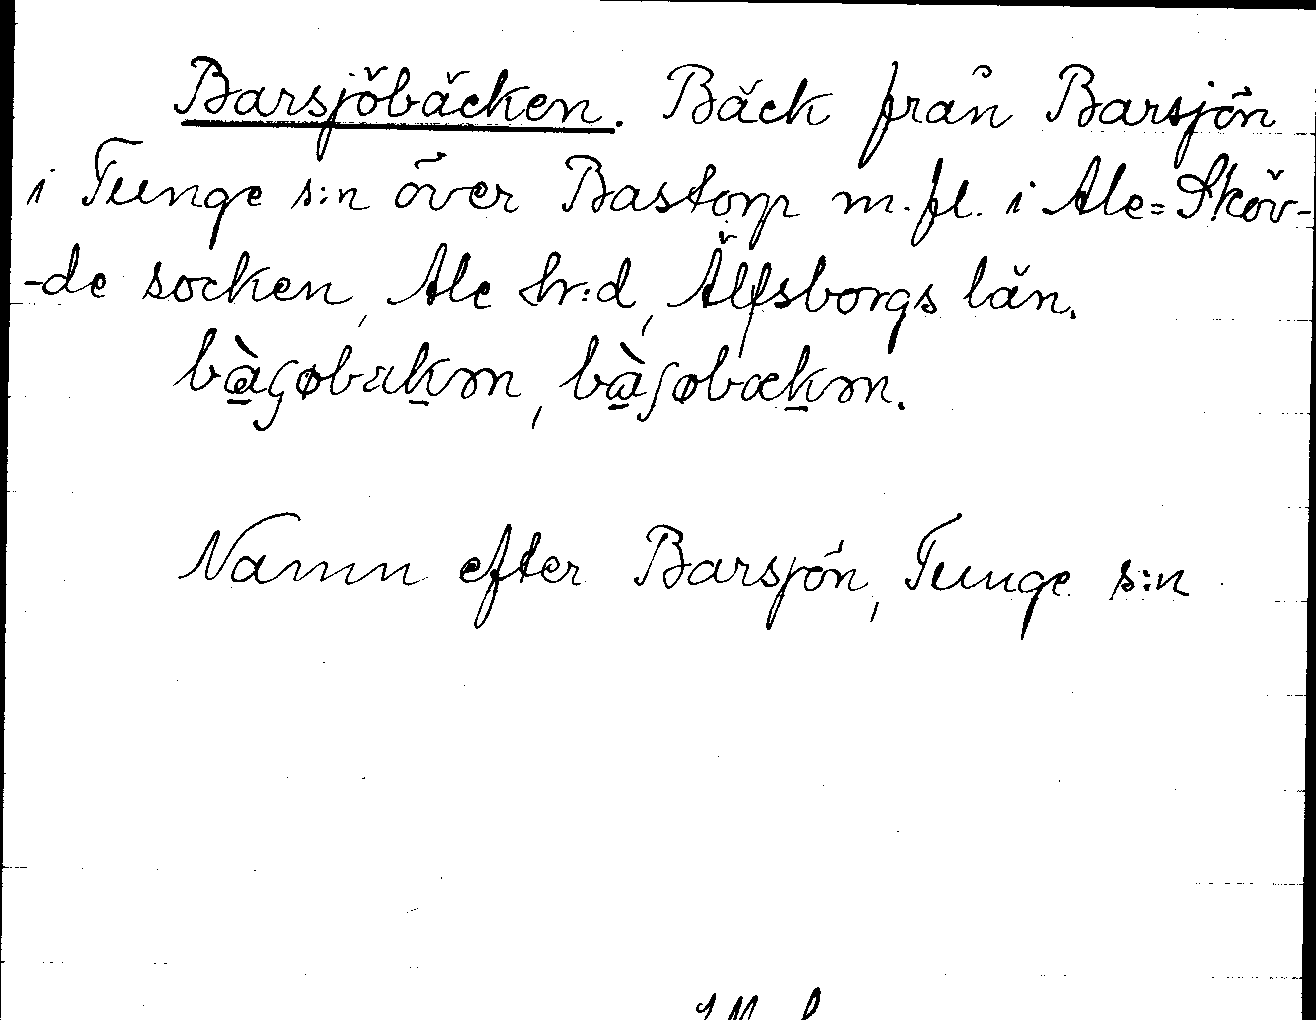 Barsjöbäcken. Bäck från Barsjön
i Tunge s:n över Bastorp m.fl. i Ale=Sköv-
-de socken, Ale hr:d, Älfsborgs län.
Namn efter Barsjön, Tunge s:n